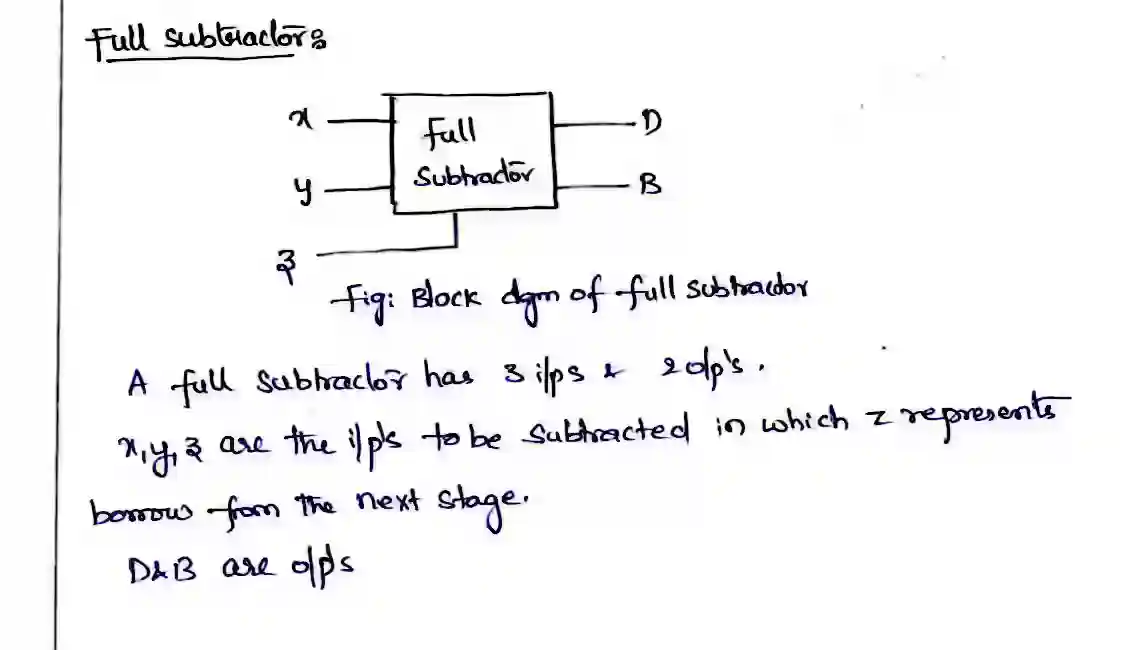 Full subtractor:
x
Full
Subtractor
D
y
B
z
Fig: Block dgm of full subtractor
A full subtractor has 3 i/ps & 2 o/p's.
x, y, z are the i/p's to be subtracted in which z represents
borrow from the next stage.
D & B are o/p's